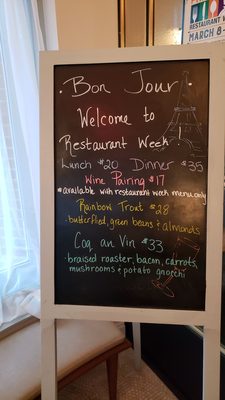 RESTAURANT
WEEK
MARCH 8-
· Bon Jour ·
Welcome to
Restaurant Week
Lunch $20 Dinner $35
Wine Pairing $17
*available with restaurant week menu only
Rainbow Trout $28
butterflied, green beans & almonds
Coq an Vin $33
braised roaster, bacon, carrots,
mushrooms & potato gnocchi